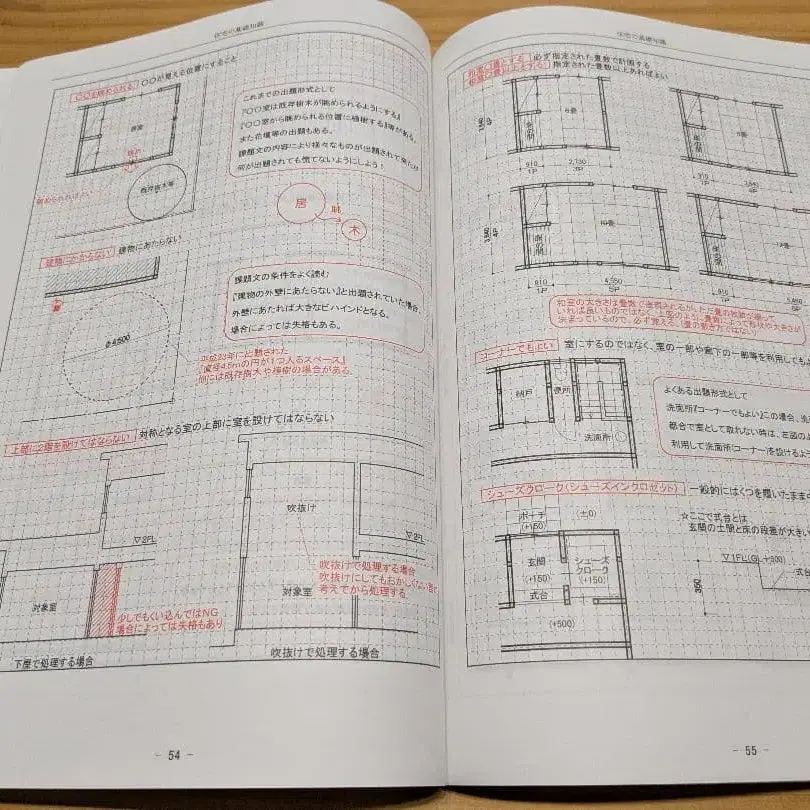 住宅の基礎知識
○○を眺められる ○○が見える位置にすること
居室
眺め
眺められればよい
既存樹木等
これまでの出題形式として
『○○室は既存樹木が眺められるようにする』
『○○室から眺められる位置に植樹する』等がある。
また花壇等の出題もある。
課題文の内容により様々なものが出題されて来たが
何が出題されても慌てないようにしよう！
居
眺
木
建物にかからない 建物にあたらない
φ4,500
課題文の条件をよく読む
『建物の外壁にあたらない』と出題されていた場合、
外壁にあたれば大きなビハインドとなる。
場合によっては失格もある。
平成23年に出題された
『直径4.5mの円が1つ入るスペース』
他には既存樹木や植樹の場合がある
上部に2階を設けてはならない 対称となる室の上部に室を設けてはならない
▽2FL
対象室
少しでもくい込んではNG
場合によっては失格もあり
下屋で処理する場合
吹抜け
▽2FL
対象室
吹抜けで処理する場合
吹抜けにしてもおかしくない室で
考えてから処理する
吹抜けで処理する場合
- 54 -
住宅の基礎知識
和室○畳とする 必ず指定された畳数で計画する
和室○畳以上とする 指定された畳数以上あればよい
床の間
6畳
910
1P
2,730
3P
床の間
8畳
910
1P
3,640
4P
3,640
4P
床の間
10畳
910
1P
4,550
5P
床の間
12畳
910
1P
5,450
和室の大きさは畳数で当て込るが、ただ畳の枚数が揃って
いれば良いものではなく、上図のように畳数によって形状や大きさが
決まっているので、必ず覚える。（畳の敷き方ではない）
コーナーでもよい 室にするのではなく、室の一部や廊下の一部等を利用しても
納戸
便所
洗面所
よくある出題形式として
洗面所『コーナーでもよい』この場合、洗
都合で室として取れない時は、左図の
利用して洗面所（コーナー）を設けるよう
シューズクローク（シューズインクロゼット） 一般的にはくつを履いたまま
ポーチ
(+150)
(±0)
玄関
(+150)
シューズ
クローク
(+150)
式台
(+500)
☆ここで式台とは
玄関の土間と床の段差が大きい
▽1FL(GL+500)
350
式台
- 55 -